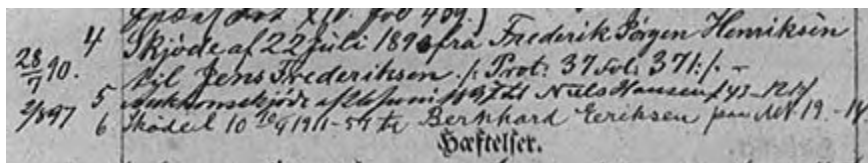 Prot. XIV. fol 459.)
28/7 90. 4 Skjöde af 22 Juli 1890 fra Frederik Jörgen Henriksen
til Jens Frederiksen ./. Prot: 37 Fol: 371:/. -
2/8 97 5 Auktionsskjöde af 26 Juni 1897 til Niels Hansen
6 Skøde 10 1911-54 til Bernhard Eeriksen paa 19.-
Hæftelser.